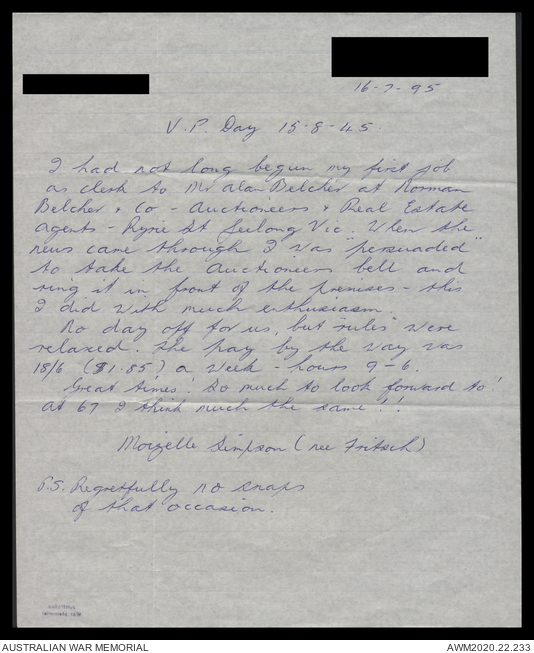 16-7-95
V.P. Day 15-8-45.
I had not long begun my first job
as clerk to Mr Alan Belcher at Norman
Belcher & Co - Auctioneers & Real Estate
Agents - Ryrie St Geelong Vic. When the
news came through I was "persuaded"
to take the Auctioneers bell and
ring it in front of the premises - this
I did with much enthusiasm.
No day off for us, but rules were
relaxed. The pay by the way was
18/6 ($1.85) a week - hours 9-6.
Great times! So much to look forward to!
At 67 I think much the same!!
Moizelle Simpson (nee Fritsch)
P.S. Regretfully no snaps
of that occasion.
AUSTRALIAN WAR MEMORIAL
AWM2020.22.233